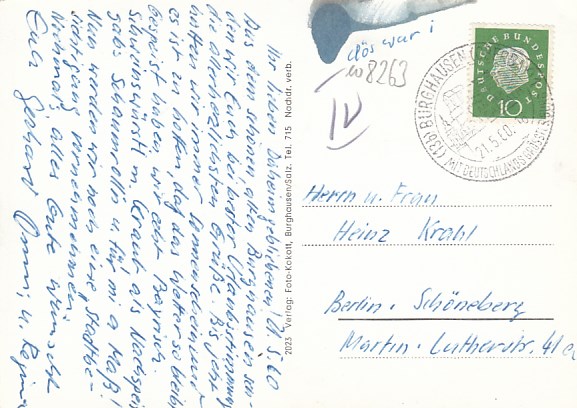 Ihr lieben Daheimgebliebenen! 21.5.60
Aus dem schönen, alten Burghausen sen-
den wir Euch bei bester Urlaubsstimmung
die allerherzlichsten Grüße. Bis jetzt
hatten wir immer Sonnenschein und
es ist zu hoffen, daß das Wetter so bleibt.
Gespeist haben wir echt Bayrisch.
Schweinswürstl m. Kraut als Nachspeis
gabs Schaumrolln u. für mi a Maß!
Nun werden wir noch eine Stadtbe-
sichtigung vornehmen.
Nochmals alles Gute wünscht
Euch Gerhard, u. Regina
2023 Verlag: Foto-Kokott, Burghausen/Salz. Tel. 715 Nachdr. verb.
dös war i
W 8263
IV
DEUTSCHE BUNDESPOST
10
(13b) BURGHAUSEN
21.5.60.
MIT DEUTSCHLANDS GRÖSSTER
Herrn u. Frau
Heinz Krahl
Berlin-Schöneberg
Martin-Lutherstr. 41a